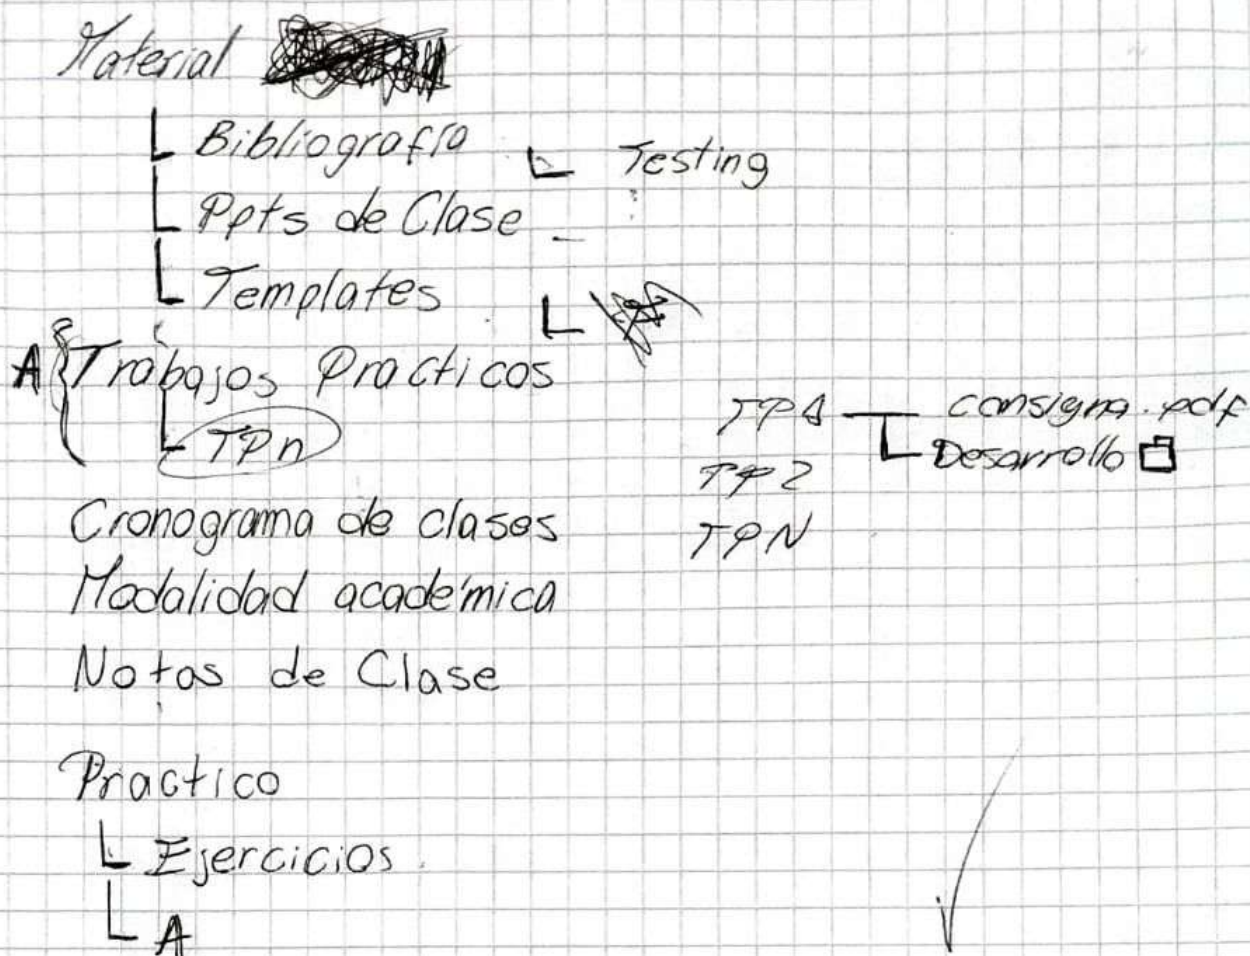 Material
Bibliografía
Testing
Ppts de Clase
Templates
A { Trabajos Practicos
TPn
TP1 consigna.pdf
Desarrollo
TP2
TPN
Cronograma de clases
Modalidad académica
Notas de Clase
Practico
Ejercicios
A